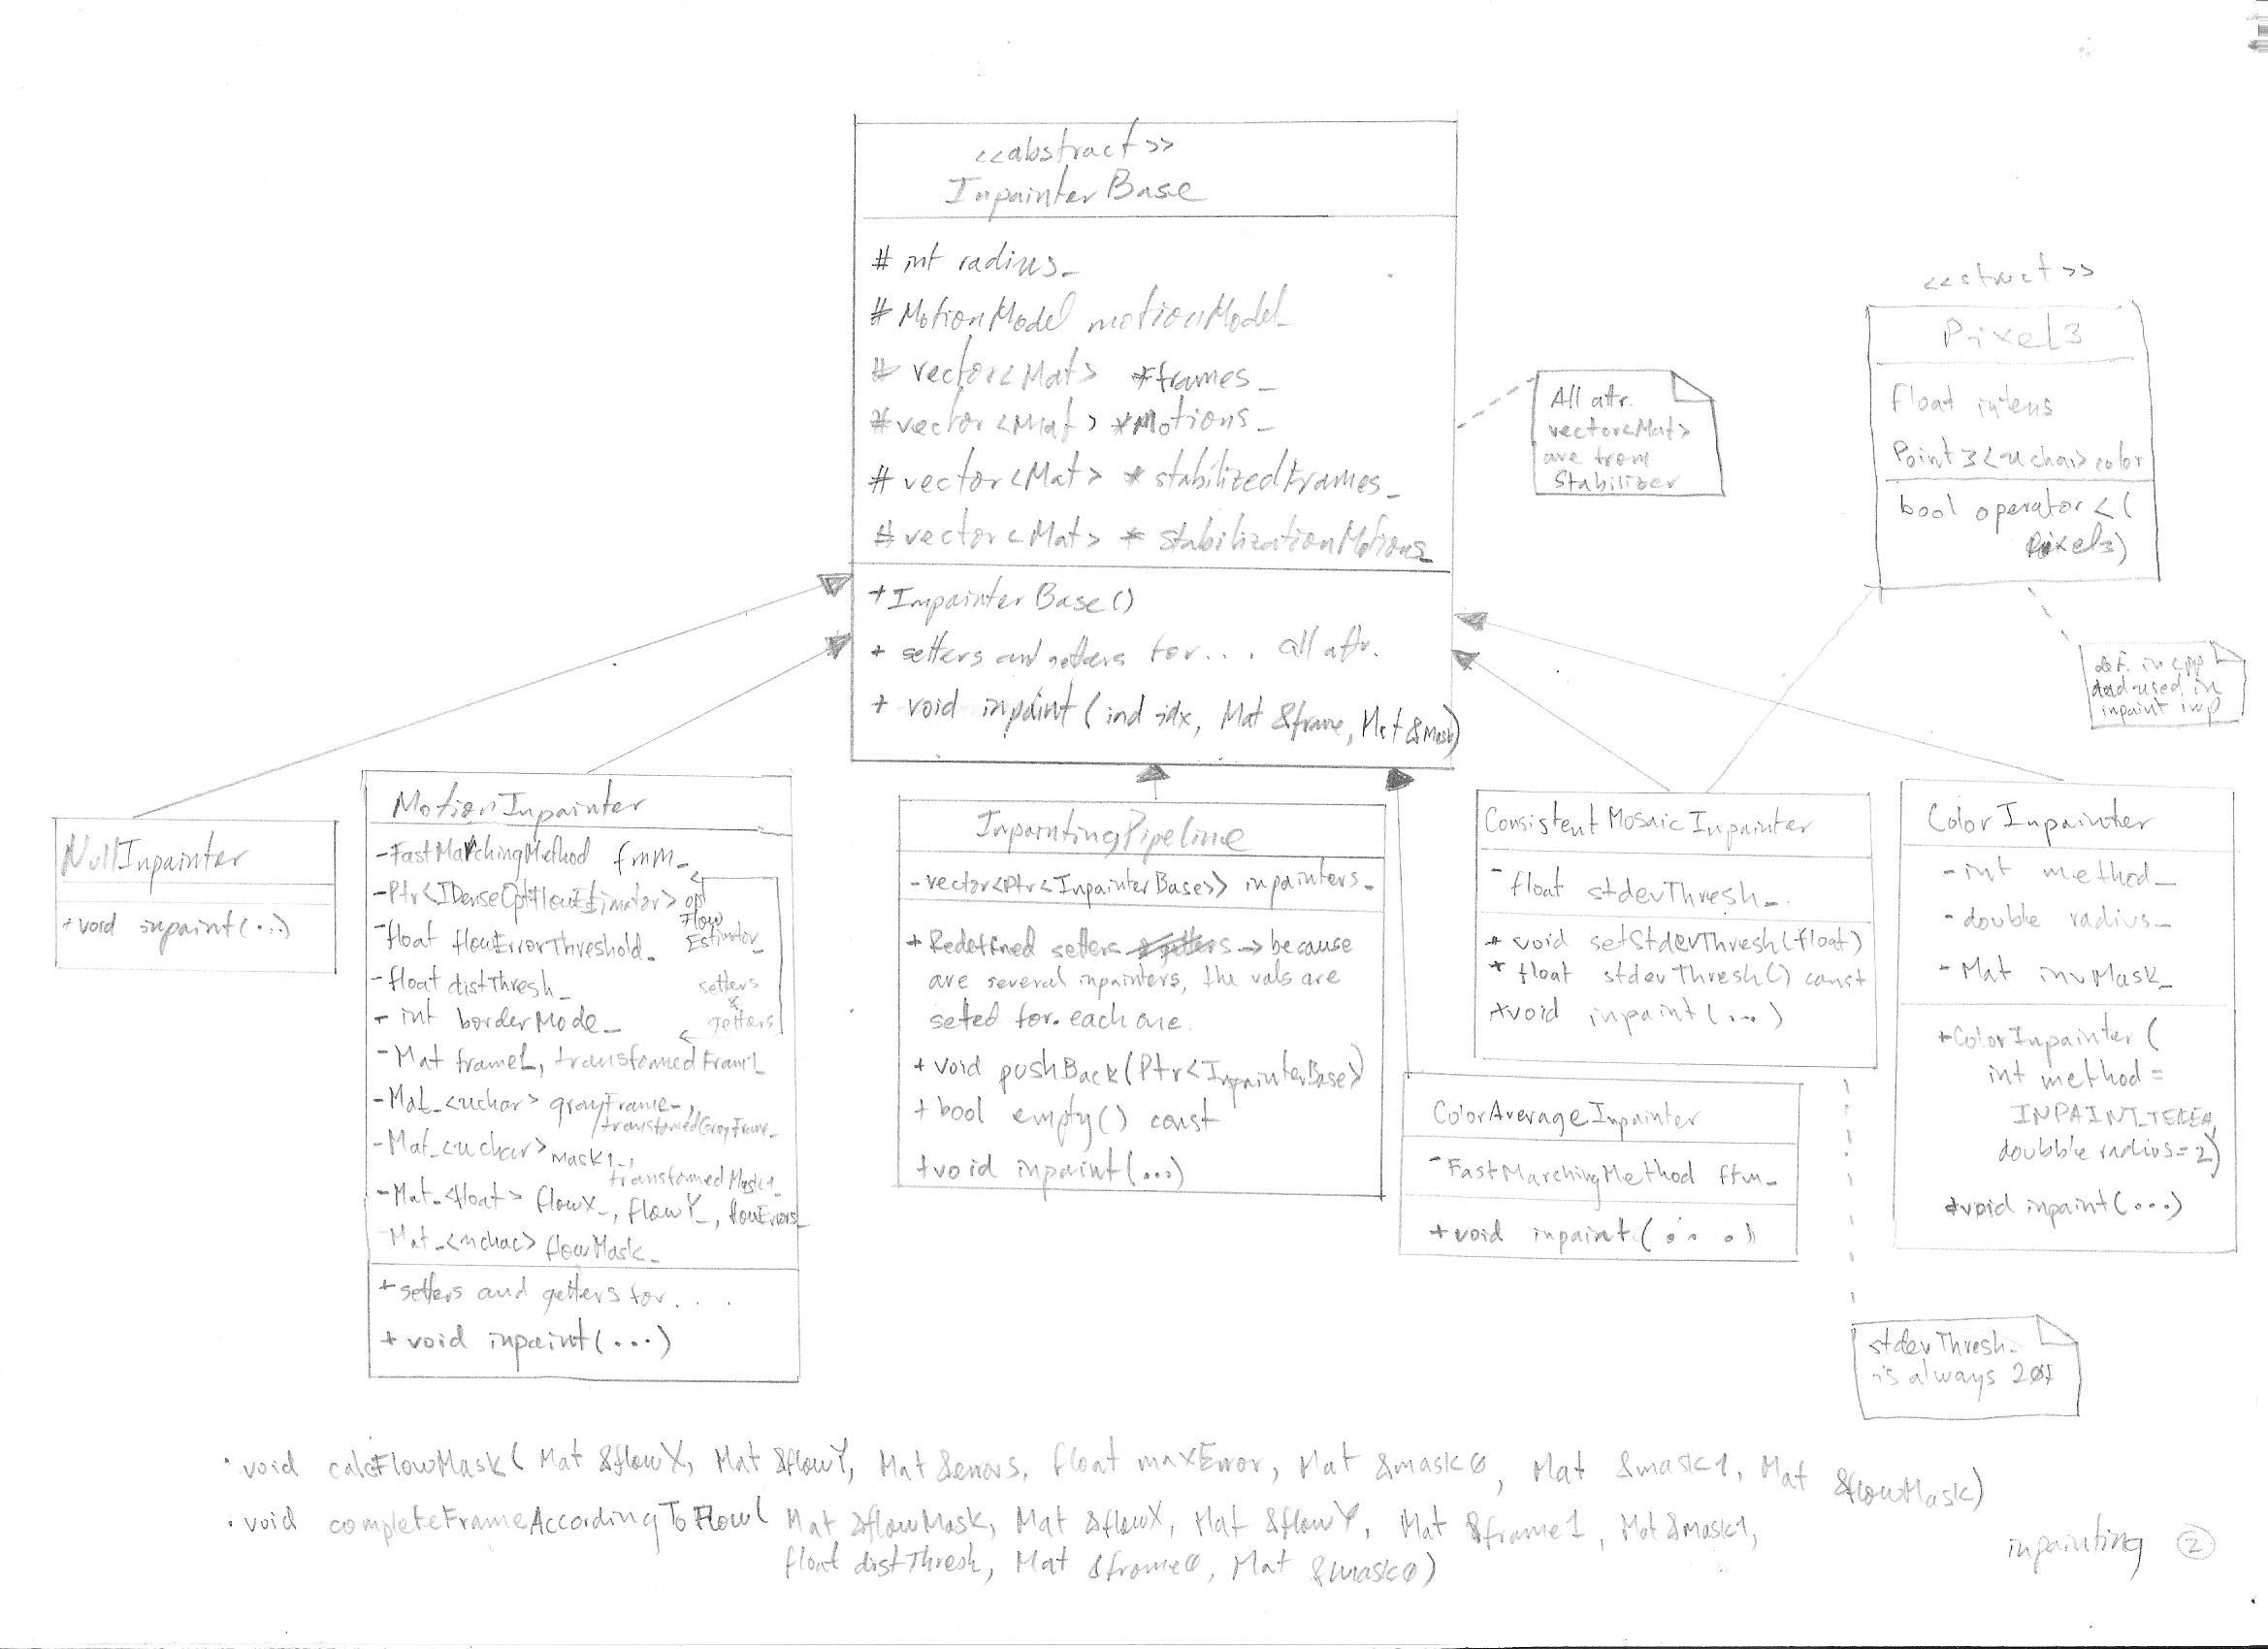 <<abstract>>
InpainterBase
# int radius_
# MotionModel motionModel_
# vector<Mat> *frames_
# vector<Mat> *Motions_
# vector<Mat> *stabilizedFrames_
# vector<Mat> *stabilizationMotions_
+ InpainterBase()
+ setters and getters for... all attr.
+ void inpaint(ind idx, Mat &frame, Mat &Mask)
All attr.
vector<Mat>
are from
Stabilizer
<<struct>>
Pixel3
float intens
Point3<uchar> color
bool operator<(
Pixel3)
def. in cpp
and used in
inpaint imp
NullInpainter
+ void inpaint(...)
MotionInpainter
- FastMarchingMethod fmm_
- Ptr<IDenseOptFlowEstimator> opt
Flow
Estimator_
- float flowErrorThreshold_
- float distThresh_
- int borderMode_
setters
&
getters
- Mat frame1, transformedFram1
- Mat_<uchar> grayFrame_,
transformedGrayFrame_
- Mat_<uchar> mask1_,
transformedMask1_
- Mat_<float> flowX_, flowY_, flowErrors_
- Mat_<uchar> flowMask_
+ setters and getters for....
+ void inpaint(...)
InpaintingPipeline
- vector<Ptr<InpainterBase>> inpainters_
+ Redefined setters & getters → because
are several inpainters, the vals are
seted for each one.
+ void pushBack(Ptr<InpainterBase>)
+ bool empty() const
+ void inpaint(...)
ConsistentMosaicInpainter
- float stdevThresh_
+ void setStdevThresh(float)
+ float stdevThresh() const
+ void inpaint(...)
ColorAverageInpainter
- FastMarchingMethod ffm_
+ void inpaint(...)
ColorInpainter
- int method_
- double radius_
- Mat invMask_
+ ColorInpainter(
int method =
INPAINT_TELEA,
doubble radius=2)
+ void inpaint(...)
stdevThresh_
is always
• void calcFlowMask(Mat &flowX, Mat &flowY, Mat &errors, float maxError, Mat &mask0, Mat &mask1, Mat &flowMask)
• void completeFrameAccordingToFlow(Mat &flowMask, Mat &flowX, Mat &flowY, Mat &frame1, Mat &mask1,
float distThresh, Mat &frame0, Mat &mask0)
inpainting 2